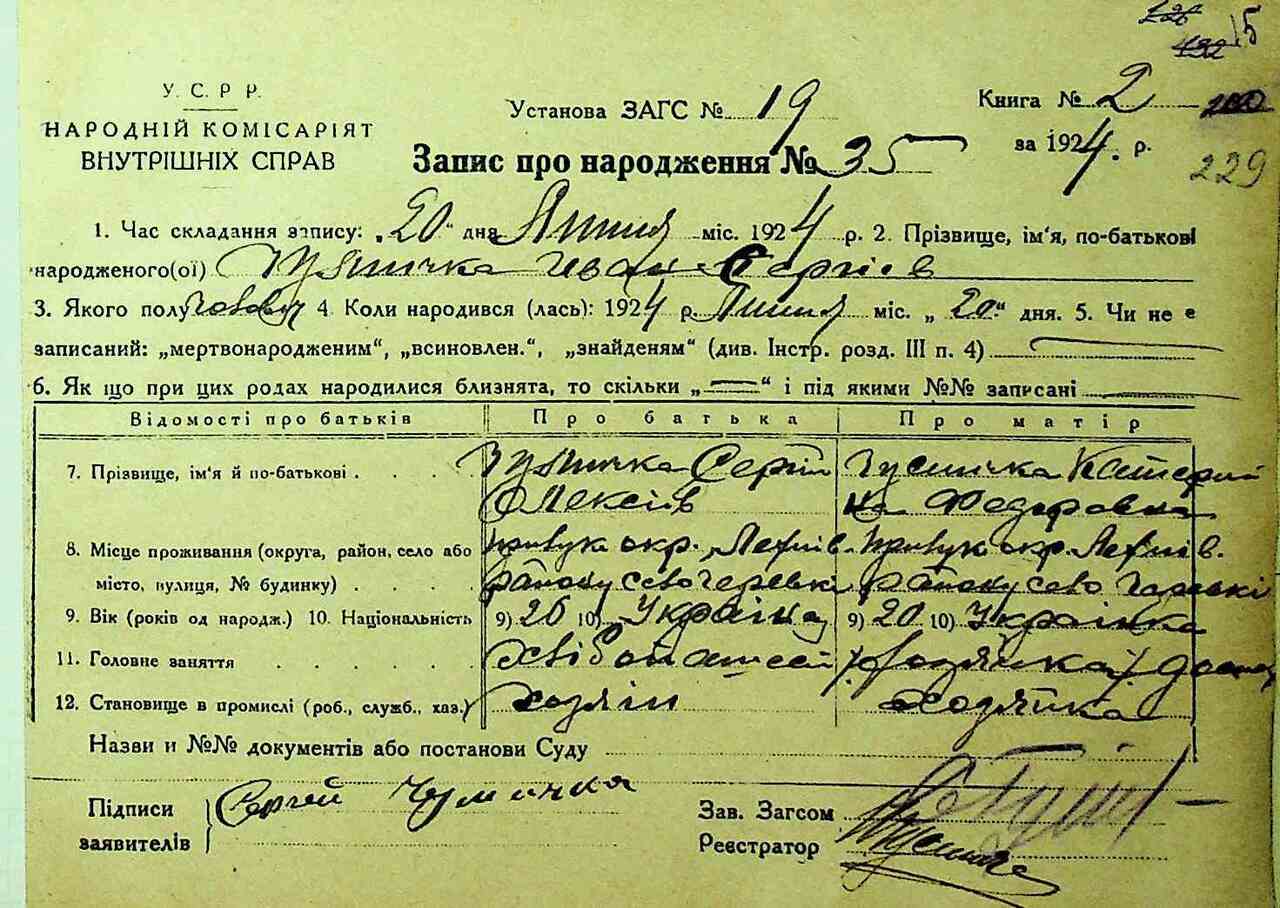 15
У. С. Р Р.
НАРОДНІЙ КОМІСАРІЯТ
ВНУТРІШНІХ СПРАВ
Установа ЗАГС № 19
Книга № 2
за 1924. р.
229
Запис про народження № 35
1. Час складання запису: „20" дня Липня міс. 1924 р. 2. Прізвище, ім'я, по-батькові
народженого(ої) Іван Сергіев
3. Якого полу чоловіч 4. Коли народився (лась): 1924 р. Липня міс. „20" дня. 5. Чи не є
записаний: „мертвонародженим", „всиновлен.", „знайденям" (див. Інстр. розд. III п. 4)
6. Як що при цих родах народилися близнята, то скільки „—" і під якими №№ записані
Відомості про батьків Про батька Про матір
7. Прізвище, ім'я й по-батькові Сергій Катерин
Олексіїв на Федоровна
8. Місце проживання (округа, район, село або Прилук окр. Прилук окр.
місто, вулиця, № будинку) району село району село
9. Вік (років од народж.) 10. Національність 9) 26 10) 9) 20 10) Українка
11. Головне заняття
12. Становище в промислі (роб., служб., хаз.) Хозяїн Хозяйка
Назви и №№ документів або постанови Суду
Підписи
заявителів
Сергей
Зав. Загсом
Реєстратор